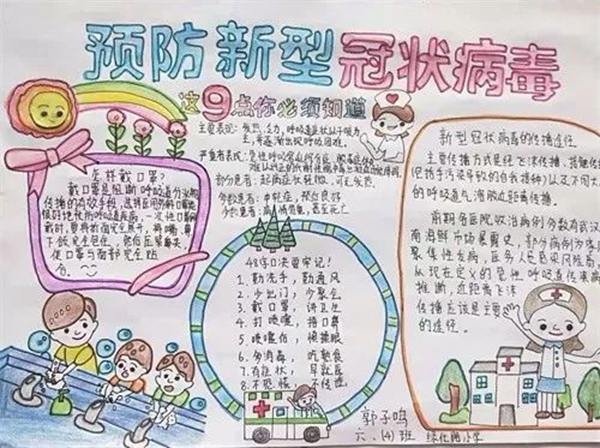 预防新型冠状病毒
这9点你必须知道
主要表现:发热、乏力,呼吸道症状以干咳为
主,并逐渐出现呼吸困难,
严重者表现:急性呼吸窘迫综合征、脓毒症休
部分患者:起病症状轻微,可无发热,
多数患者:为轻症,预后良好
少数患者:病情危重,甚至死亡
怎样戴口罩?
戴口罩是阻断呼吸道分泌物
传播的有效手段,选择医用外科口罩能
很好地预防呼吸道疾病,一次性口罩佩
戴时,要将折面完全展开,将嘴、鼻、
下颌完全包住,然后压紧鼻夹,
使口罩与面部完全贴
合。
48字口决要牢记!
1、勤洗手,勤通风
2、少出门,少聚会
3、戴口罩,讲卫生
4、打喷嚏,捂口鼻
5、喷嚏后,慎揉眼
6、多消毒,吃熟食
7、有症状,早就医
8、不恐慌,不传谣
新型冠状病毒的传播途径。
主要传播方式是经飞沫传播、接触传播
(包括手污染导致的自我接种)以及不同大小
的呼吸道气溶胶近距离传播。
前期各医院收治病例多数有武汉
南海鲜市场暴露史,部分病例为家庭
聚集性发病,医务人员感染风险高,
从现在定义的急性呼吸道传染病
推断,近距离飞沫
传播应该是主要
的途径。
郭子鸣
六、(4)班
小学